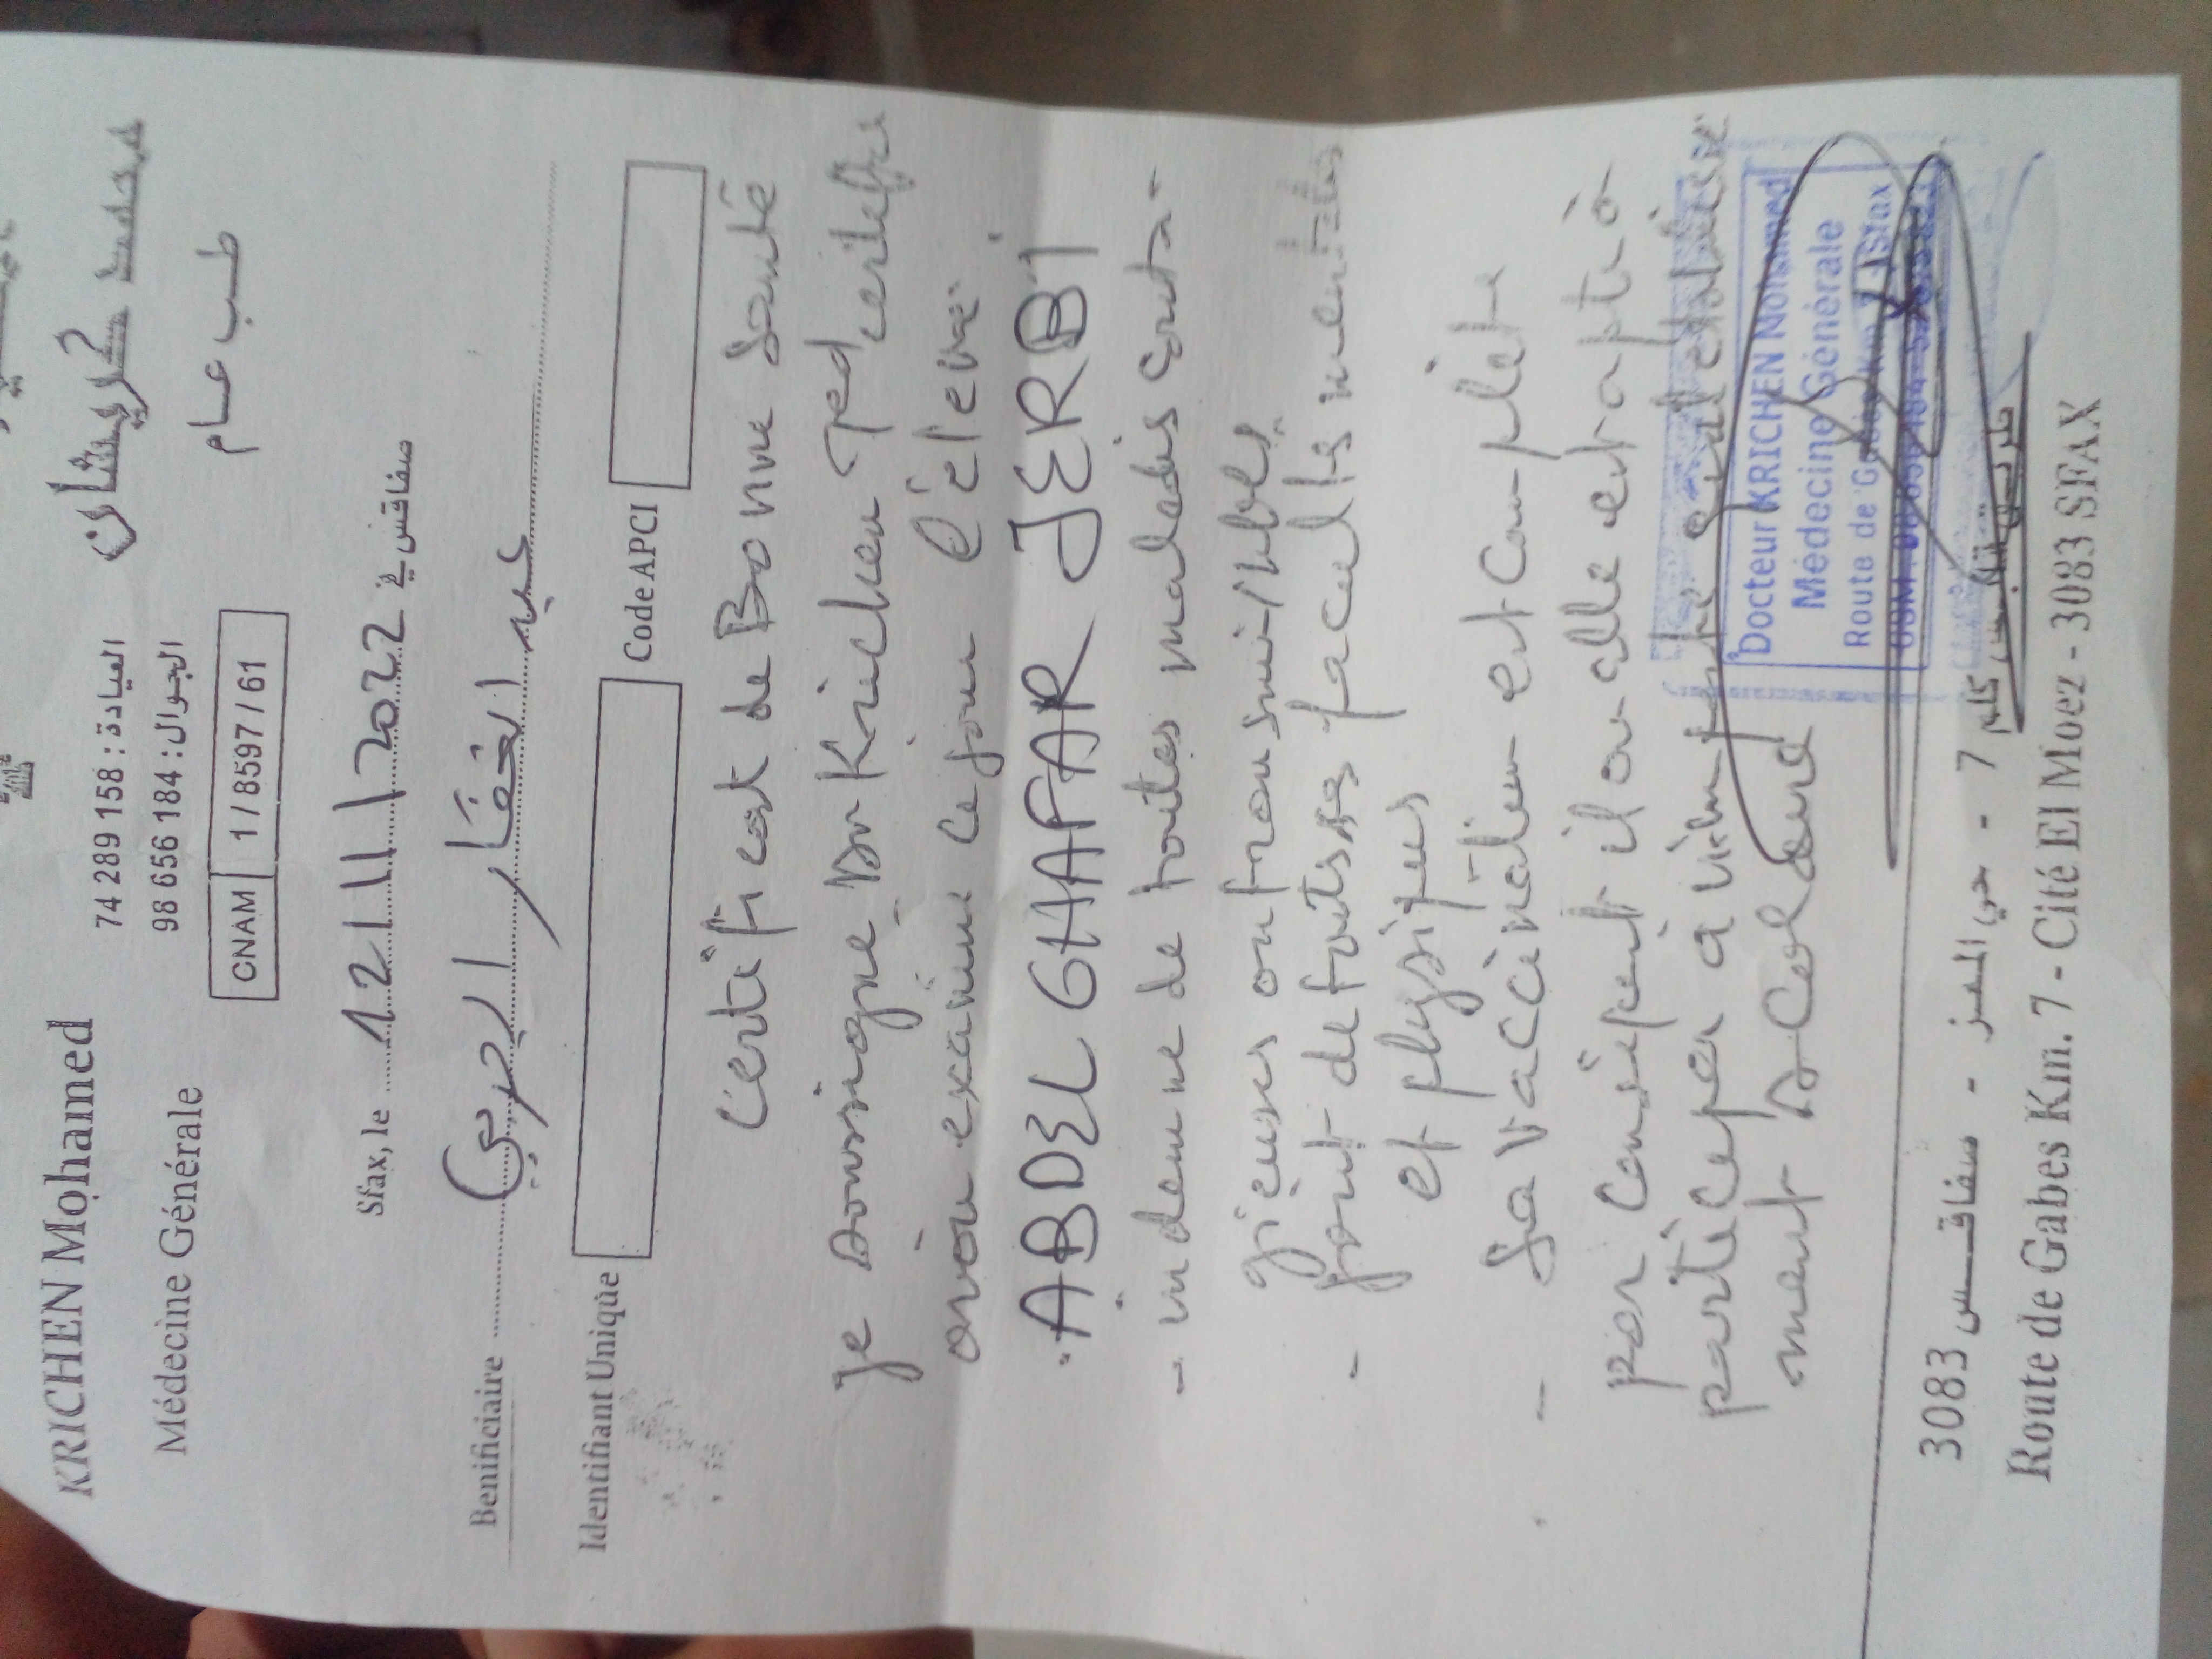 KRICHEN Mohamed
محمد كريشان
Médecine Générale
طب عام
74 289 158 : العيادة
98 656 184 : الجوال
CNAM 1 / 8597 / 61
Sfax, le 12/11/2022 صفاقس في
Benificiaire عبد الغفار الجربي
Identifiant Unique Code APCI
Certificat de Bonne Santé
Je soussigne Dr Krichen Med certifie
avoir examine ce jour l'éleve
"ABDEL GHAFAR JERBI
- indemne de toutes maladies conta-
gieuses ou transmissibles
- jouit de toutes ses facultes mentales
et physiques
- Sa vaccination est complète
par conséquent il ou elle est apte à
participer à
ment scolaire
Docteur KRICHEN Mohamed
Médecine Générale
Route de Gabès Km 7 Sfax
3083 صفاقس - حي المعز - 7 طريق قابس كلم
Route de Gabes Km. 7 - Cité El Moez - 3083 SFAX